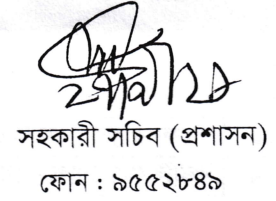 সহকারী সচিব (প্রশাসন)
ফোন : ৯৫৫২৮৪৯